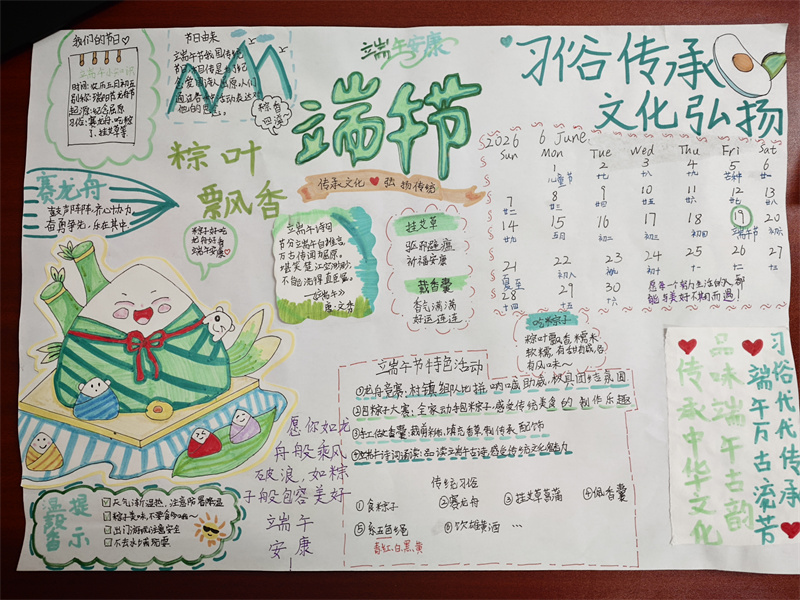 我们的节日
端午节小知识
时间:农历五月初五
别称:端阳节龙舟节
起源:纪念屈原
习俗:赛龙舟、吃粽
子、挂艾草等
节日由来
端午节我国传统
节日,相传是为了纪
念爱国诗人屈原,人们
通过各种活动表达对
他的
粽香
四溢
端午安康
端午节
传承文化 弘扬传统
习俗传承
文化弘扬
粽叶
飘香
赛龙舟
鼓声阵阵,齐心协力
奋勇争先,乐在其中
粽子好吃
龙舟好看
端午安康
端午诗词
节分端午自谁言,
万古传闻为屈原。
堪笑楚江空渺渺,
不能洗得直臣冤。
《端午》
唐·文秀
挂艾草
驱邪避瘟
祈福安康
戴香囊
香气满满
好运连连
2026 6 June
Sun Mon Tue Wed Thu Fri Sat
1 2 3 4 5 6
儿童节 十七 十八 十九 芒种 廿一
7 8 9 10 11 12 13
廿二 廿三 廿四 廿五 廿六 廿七 廿八
14 15 16 17 18 19 20
廿九 五月 初二 初三 初四 端午节 初六
21 22 23 24 25 26 27
夏至 初八 初九 初十 十一 十二 十三
28 29 30
十四 十五 十六
愿每一个努力生活的人都
能与美好不期而遇!
吃粽子
粽叶飘香糯米
软糯,有甜有咸各
有风味~
端午节特色活动
①龙舟竞赛:村镇组队比拼呐喊助威,极具团结氛围
②包粽子大赛:全家动手包粽子,感受传统美食的制作乐趣
③手工做香囊:裁剪缝制,填充香草制传承配饰
④端午诗词诵读:品读文端午古诗,感受传统文化魅力
传统习俗
①食粽子 ②赛龙舟 ③挂艾草菖蒲 ④佩香囊
⑤系五色绳 ⑥饮雄黄酒 …
青、红、白、黑、黄
愿你如龙
舟般乘风
破浪,如粽
子般包容美好
端午
安康
温馨提示
天气渐湿热,注意防暑降温
粽子美味,不要贪吃哦~
出门游玩注意安全
不去水边玩耍
习俗代代传承
端午万古流芳
品味端午古韵
传承中华文化